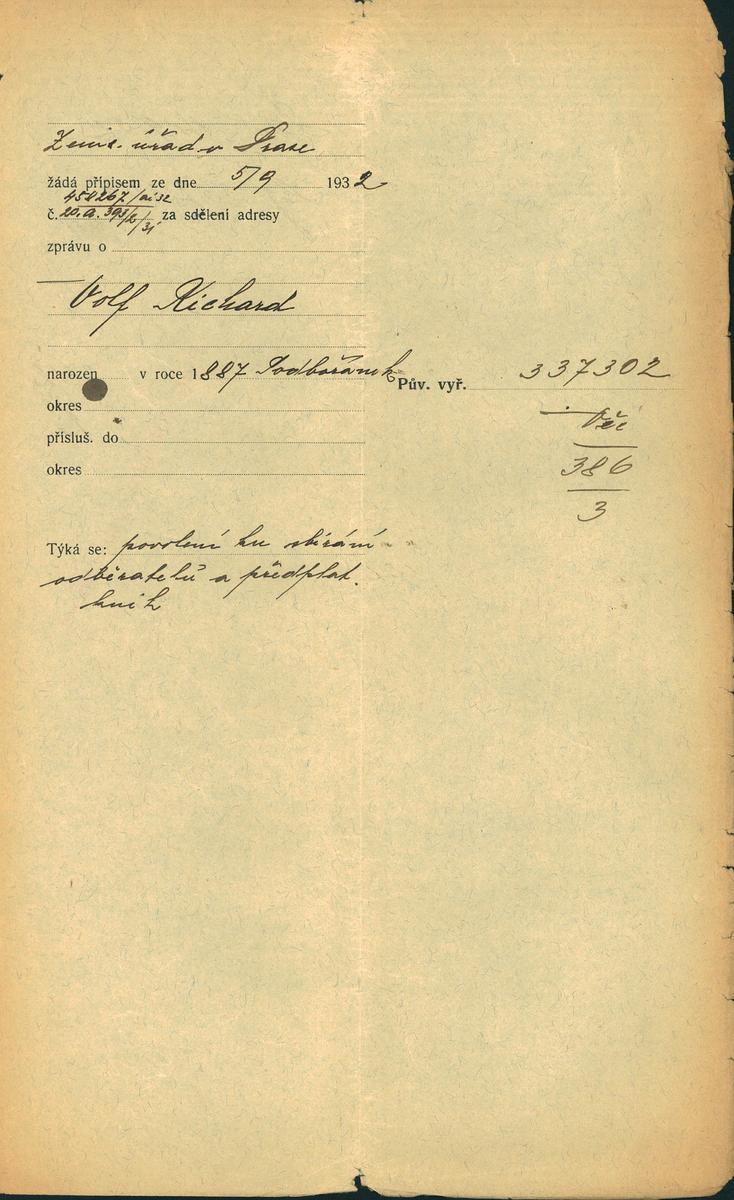 Zems. úřad v Praze
žádá přípisem ze dne 5/9 1932
458267/ai 32
č. 20. a. 393/2/31 za sdělení adresy
zprávu o
Volf Richard
narozen v roce 1887 Podbořánek
Pův. vyř. 337302
okres
přísluš. do
386
okres
3
Týká se: povolení ku sbírání
odběratelů a předplat.
knih